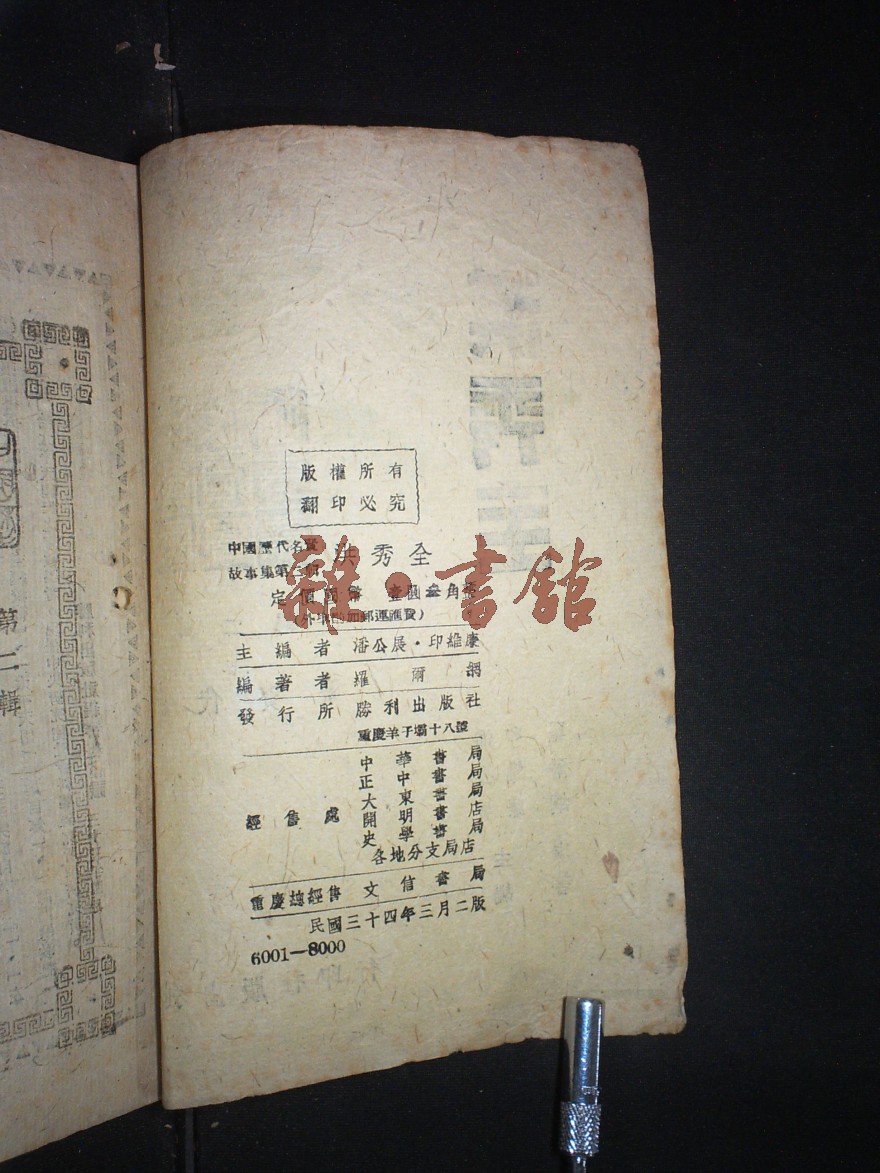 版權所有
翻印必究
中國歷代名賢
故事集第三輯
洪秀全
定價國幣 壹圓叁角
(外埠酌加郵運匯費)
主編者 潘公展·印維廉
編著者 羅爾綱
發行所 勝利出版社
重慶羊子壩十八號
經售處
中華書局
正中書局
大東書局
開明書店
史學書局
各地分支局店
重慶總經售 文信書局
民國三十四年三月二版
6001—8000
雜·書館
第二輯